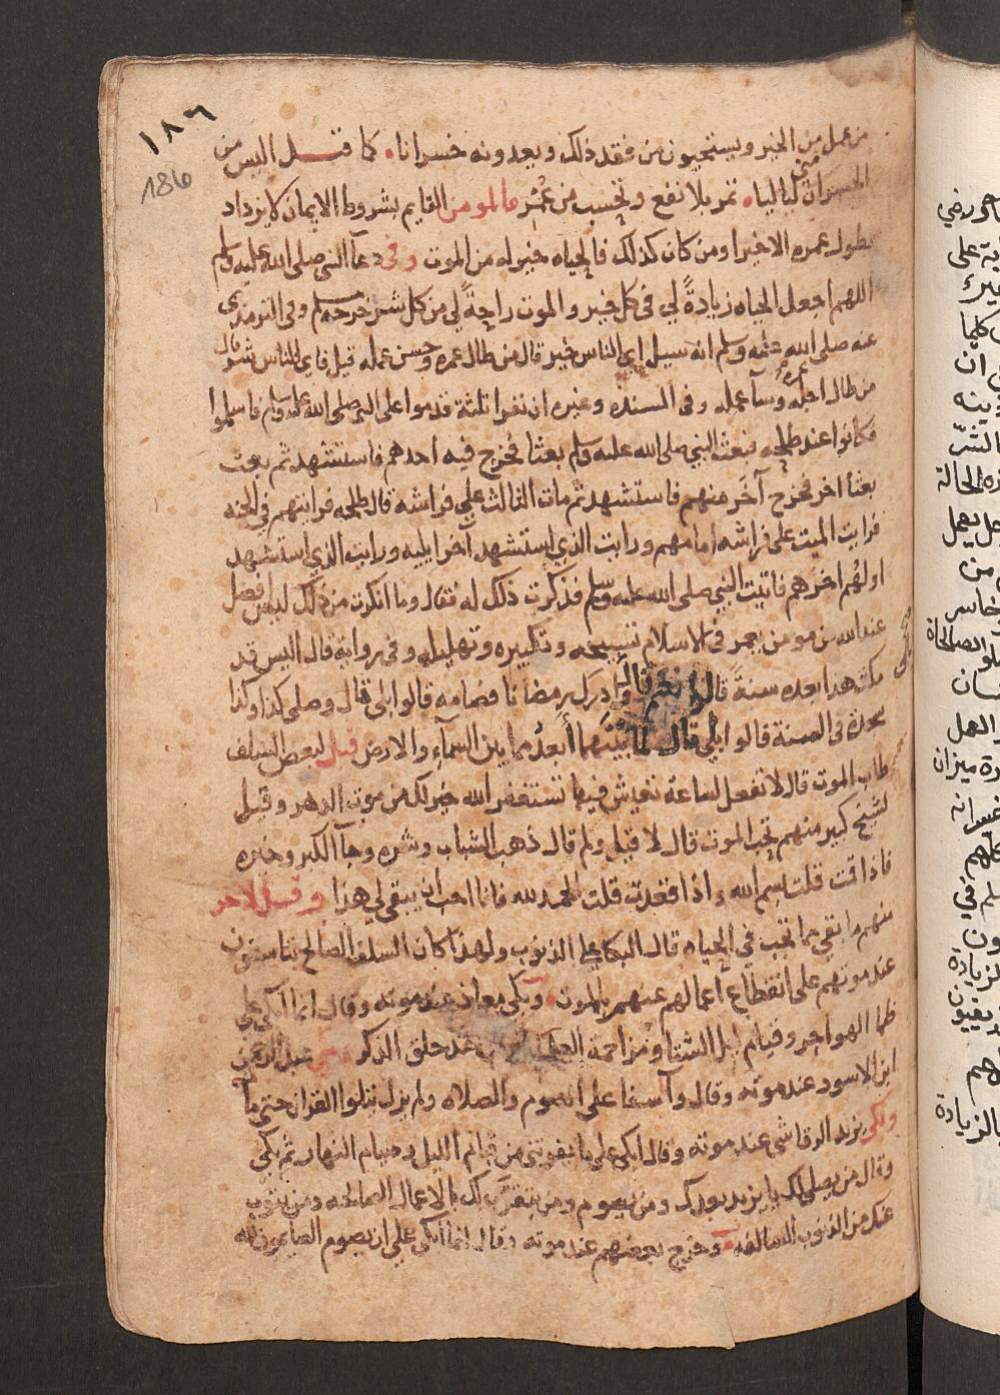 ١٨٦
186
من عمل من الخير ويستحيون من فقد ذلك ويعدونه خسرانا كما قيل اليس من
الخسران ليالياه تمر بلا نفع وتحسب من عمري فالمومن القايم بشروط الايمان لا يزداد
بطول عمره الا خيرا ومن كان كذلك فالحياه خير له من الموت وفي دعآ النبي صلى الله عليه وسلم
اللهم اجعل الحياه زيادةً لي في كل خير والموت راحةً لي من كل شر خرجه مسلم وفي الترمذي
عنه صلى الله عليه وسلم انه سيل اي الناس خير قال من طال عمره وحسن عمله قيل فاي الناس شر قال
من طال عمره وسآ عمله وفي المسند وغيره ان نفرا ثلثة قدموا على النبي صلى الله عليه وسلم فاسلموا
فكانوا عند طلحه فبعث النبي صلى الله عليه وسلم بعثا فخرج فيه احدهم فاستشهد ثم بعث
بعثا اخر فخرج آخر منهم فاستشهد ثم مات الثالث على فراشه قال طلحه فرايتهم في الجنه
فرايت الميت على فراشه امامهم ورايت الذي استشهد آخرا يليه ورايت الذي استشهد
اولهم اخرهم فاتيت النبي صلى الله عليه وسلم فذكرت ذلك له فقال وما انكرت من ذلك ليس افضل
عند الله من مومن يعمر في الاسلام تسبيحه وتكبيره وتهليله وفي رواية قال اليس قد
مكث هدا بعده سنةً قالوا نعم قال وادرك رمضانا فصامه قالوا بلى قال وصلى كذا وكذا
سجدة في السنة قالوا بلى قال لما بينهما أبعدُ مما بين السمآء والارض قيل لبعض السلف
طاب الموت قال لا تفعل لساعة تعيش فيها تستغفر الله خير لك من موت الدهر وقيل
لشيخ كبير منهم تحب الموت قال لا قيل ولم قال ذهب الشباب وشره وجآ الكبر وخيره
فاذا قمت قلت بسم الله واذا قعدت قلت الحمد لله فانا احب ان يبقى لي هذا وقيل لاخر
منهم ما بقي مما تحب في الحياه قال البكا على الذنوب ولهذا كان السلف الصالح يتاسفون
عند موتهم على انقطاع اعمالهم عنهم بالموت وبكى معاذ عند موته وقال انما ابكي على
ظما الهواجر وقيام ليل الشتا ومزاحمة العلما عند حلق الذكر وبكى عبد الرحمن
ابن الاسود عند موته وقال وآسفا على الصوم والصلاه ولم يزل يتلوا القران حتى مات
وبكى يزيد الرقاشي عند موته وقال ابكي على ما يفوتني من قيام الليل وصيام النهار ثم بكى
وقال من يصلي لك يا يزيد بعدك ومن يصوم ومن يتقرب لك بالاعمال الصالحه ومن يتوب
عنك من الذنوب السالفه وجزع بعضهم عند موته وقال انما ابكي على ان يصوم الصايمون لله